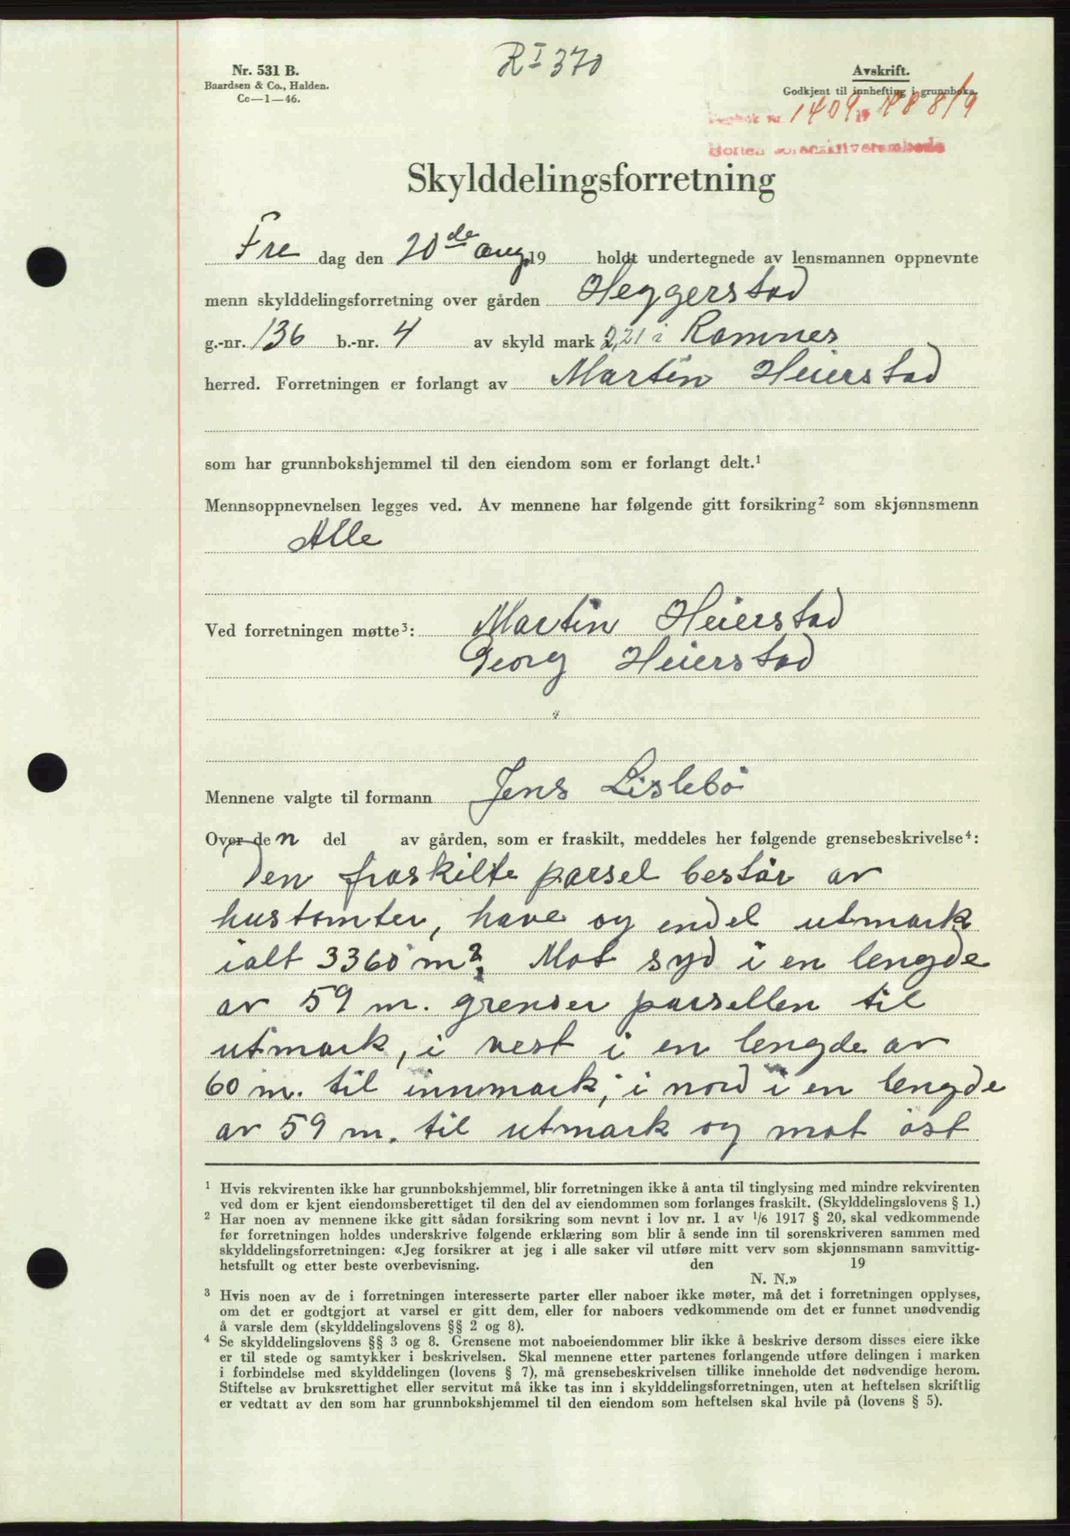 R I 370
Nr. 531 B.
Baardsen & Co., Halden.
Cc—1—46.
Avskrift.
Godkjent til innhefting i grunnboka.
Dagbok nr. 1409 1948 8/9
Horten sorenskriverembede
Skylddelingsforretning
Fre dag den 20de aug. 19 holdt undertegnede av lensmannen oppnevnte
menn skylddelingsforretning over gården Heggerstad
g.-nr. 136 b.-nr. 4 av skyld mark 2,21 i Ramnes
herred. Forretningen er forlangt av Martin Heierstad
som har grunnbokshjemmel til den eiendom som er forlangt delt.¹
Mennsoppnevnelsen legges ved. Av mennene har følgende gitt forsikring² som skjønnsmenn
Alle
Ved forretningen møtte³: Martin Heierstad
Georg Heierstad
Mennene valgte til formann Jens Lislebö
Over den del av gården, som er fraskilt, meddeles her følgende grensebeskrivelse⁴:
Den fraskilte parsel består av
hustomter, have og endel utmark
ialt 3360 m². Mot syd i en lengde
av 59 m. grenser parsellen til
utmark, i vest i en lengde av
60 m. til innmark, i nord i en lengde
av 59 m. til utmark og mot öst
¹ Hvis rekvirenten ikke har grunnbokshjemmel, blir forretningen ikke å anta til tinglysing med mindre rekvirenten
ved dom er kjent eiendomsberettiget til den del av eiendommen som forlanges fraskilt. (Skylddelingslovens § 1.)
² Har noen av mennene ikke gitt sådan forsikring som nevnt i lov nr. 1 av 1/6 1917 § 20, skal vedkommende
før forretningen holdes underskrive følgende erklæring som blir å sende inn til sorenskriveren sammen med
skylddelingsforretningen: «Jeg forsikrer at jeg i alle saker vil utføre mitt verv som skjønnsmann samvittig-
hetsfullt og etter beste overbevisning. den 19
N. N.»
³ Hvis noen av de i forretningen interesserte parter eller naboer ikke møter, må det i forretningen opplyses,
om det er godtgjort at varsel er gitt dem, eller for naboers vedkommende om det er funnet unødvendig
å varsle dem (skylddelingslovens §§ 2 og 8).
⁴ Se skylddelingslovens §§ 3 og 8. Grensene mot naboeiendommer blir ikke å beskrive dersom disses eiere ikke
er til stede og samtykker i beskrivelsen. Skal mennene etter partenes forlangende utføre delingen i marken
i forbindelse med skylddelingen (lovens § 7), må grensebeskrivelsen tillike inneholde det nødvendige herom.
Stiftelse av bruksrettighet eller servitut må ikke tas inn i skylddelingsforretningen, uten at heftelsen skriftlig
er vedtatt av den som har grunnbokshjemmel til den eiendom som heftelsen skal hvile på (lovens § 5).